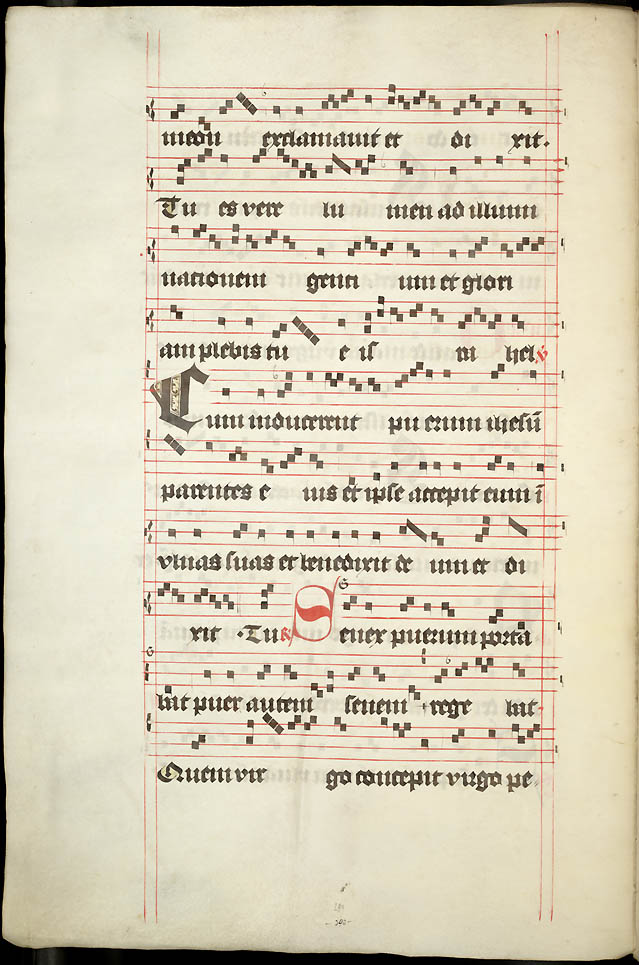 meon̄ exclamauit et di xit.
Tu es vere lu men ad illumi
nationem genti um et glori
am plebis tu e is ra hel ꝟ
Cum inducerent pu erum ihesū
parentes e ius et ipse accepit eum ī
vlnas suas et benedixit de um et di
xit. Tu R Senex puerum porta
bat puer autem senem rege bat
Quem vir go concepit virgo pe-
202